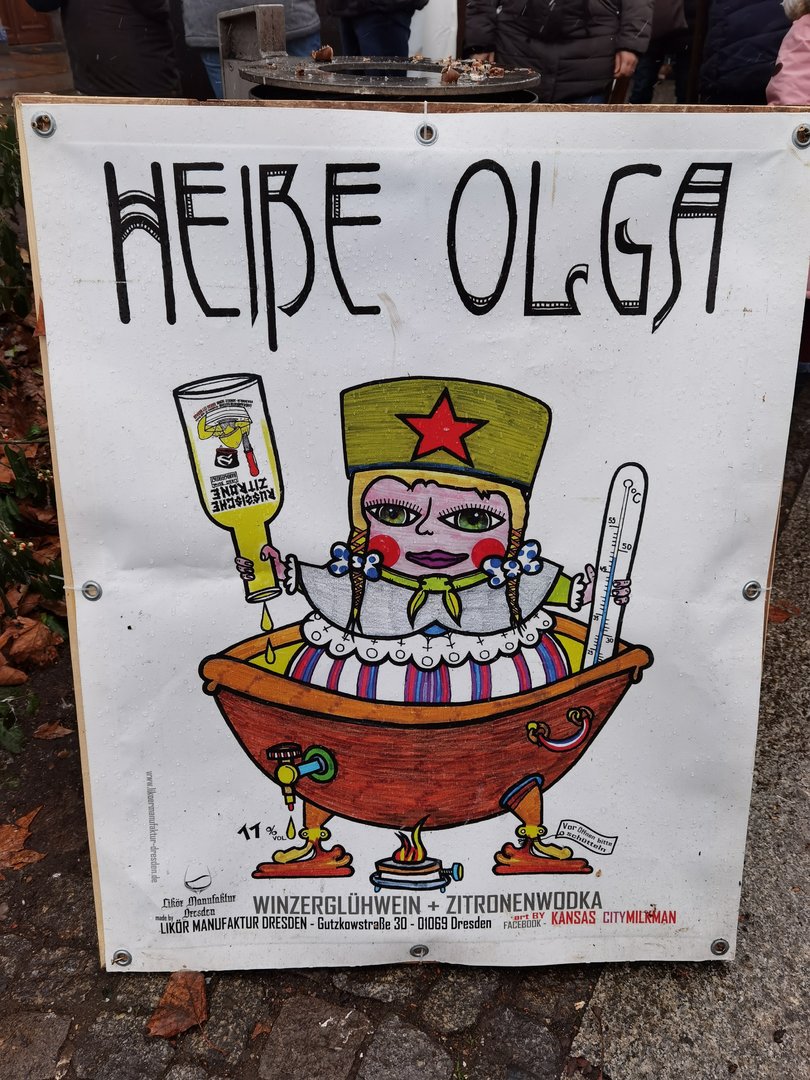 HEIßE OLGA
RUSSISCHE
ZITRONE
°C
55
50
45
35
30
25
Vor Öffnen bitte
schütteln
11 % VOL.
www.likoermanufaktur-dresden.de
Likör Manufaktur
Dresden
WINZERGLÜHWEIN + ZITRONENWODKA
made by LIKÖR MANUFAKTUR DRESDEN - Gutzkowstraße 30 - 01069 Dresden
art BY KANSAS CITYMILKMAN
FACEBOOK -